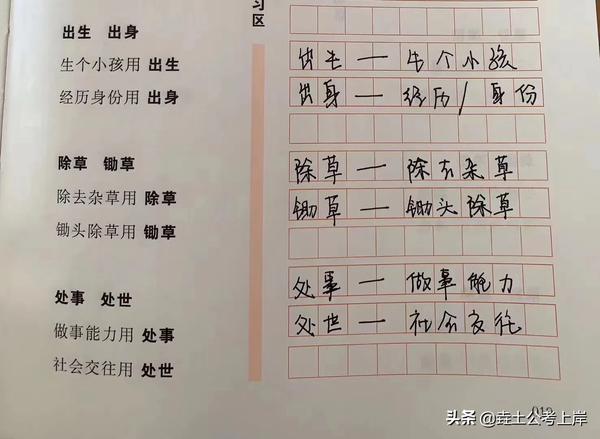 习
区
出生 出身
生个小孩用 出生
经历身份用 出身
除草 锄草
除去杂草用 除草
锄头除草用 锄草
处事 处世
做事能力用 处事
社会交往用 处世
出生 — 生个小孩
出身 — 经历/身份
除草 — 除去杂草
锄草 — 锄头除草
处事 — 做事能力
处世 — 社会交往
头条 @垚土公考上岸